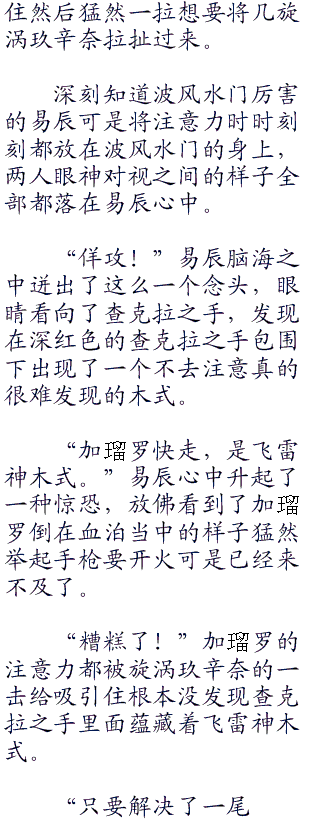 住然后猛然一拉想要将几旋
涡玖辛奈拉扯过来。
深刻知道波风水门厉害
的易辰可是将注意力时时刻
刻都放在波风水门的身上，
两人眼神对视之间的样子全
部都落在易辰心中。
“佯攻！”易辰脑海之
中迸出了这么一个念头，眼
睛看向了查克拉之手，发现
在深红色的查克拉之手包围
下出现了一个不去注意真的
很难发现的木式。
“加瑠罗快走，是飞雷
神木式。”易辰心中升起了
一种惊恐，放佛看到了加瑠
罗倒在血泊当中的样子猛然
举起手枪要开火可是已经来
不及了。
“糟糕了！”加瑠罗的
注意力都被旋涡玖辛奈的一
击给吸引住根本没发现查克
拉之手里面蕴藏着飞雷神木
式。
“只要解决了一尾